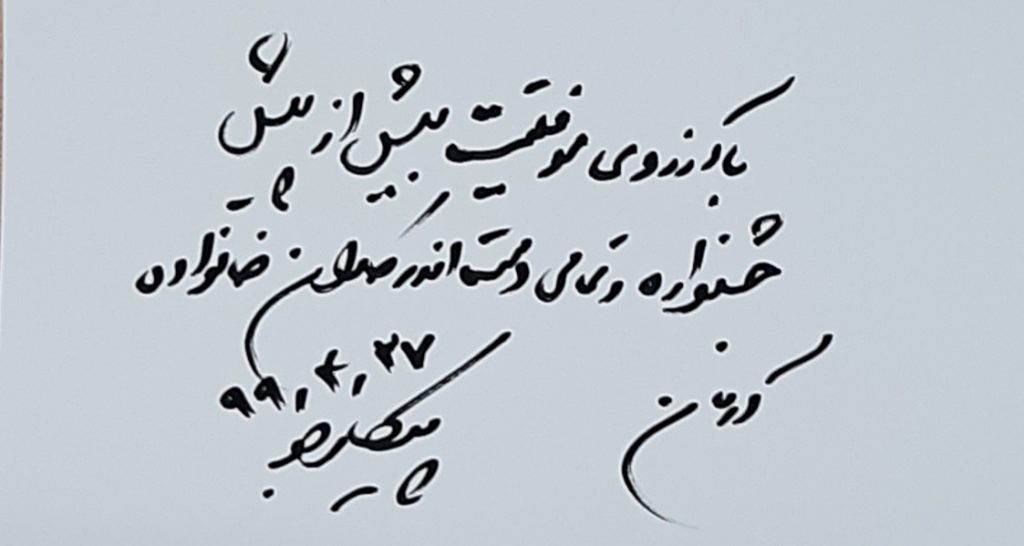 با آرزوی موفقیت بیش از پیش
جشنواره و تمامی دست اندرکاران خانواده
ورزش
۲۷، ۴، ۹۹